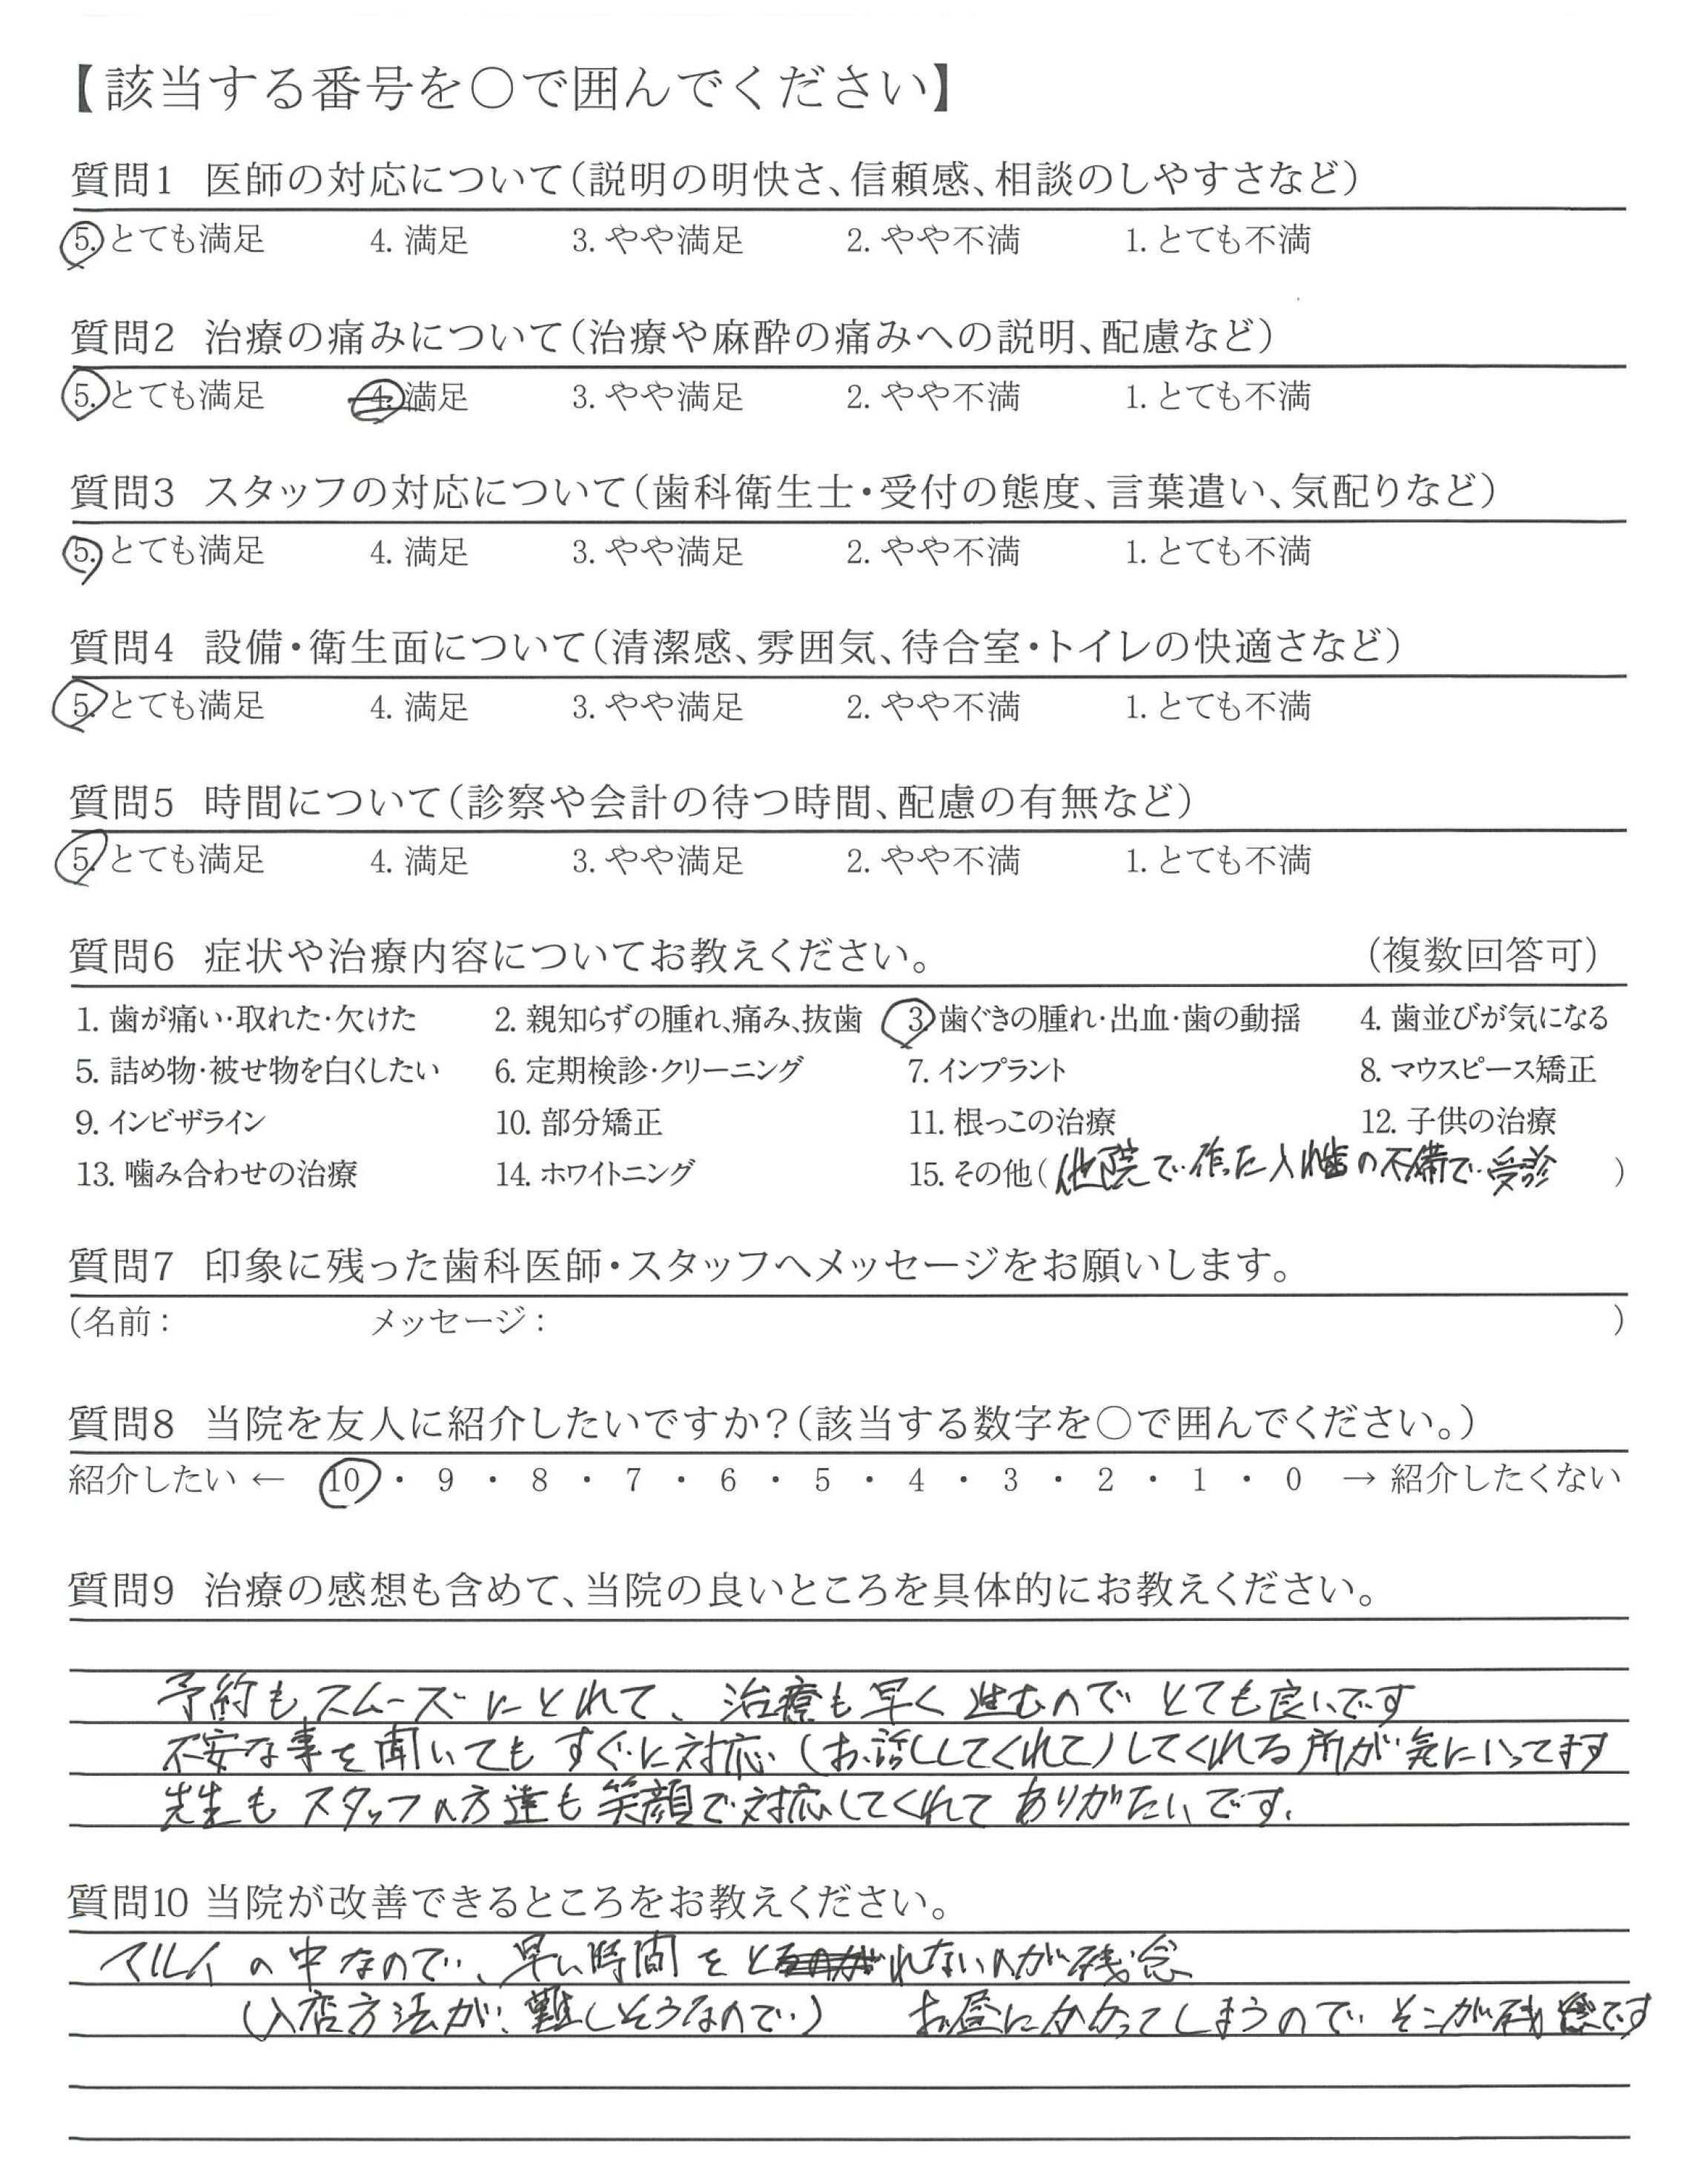 【該当する番号を○で囲んでください】
質問1 医師の対応について(説明の明快さ、信頼感、相談のしやすさなど)
5. とても満足 4. 満足 3. やや満足 2. やや不満 1. とても不満
質問2 治療の痛みについて(治療や麻酔の痛みへの説明、配慮など)
5. とても満足 4. 満足 3. やや満足 2. やや不満 1. とても不満
質問3 スタッフの対応について(歯科衛生士・受付の態度、言葉遣い、気配りなど)
5. とても満足 4. 満足 3. やや満足 2. やや不満 1. とても不満
質問4 設備・衛生面について(清潔感、雰囲気、待合室・トイレの快適さなど)
5. とても満足 4. 満足 3. やや満足 2. やや不満 1. とても不満
質問5 時間について(診察や会計の待つ時間、配慮の有無など)
5. とても満足 4. 満足 3. やや満足 2. やや不満 1. とても不満
質問6 症状や治療内容についてお教えください。 (複数回答可)
1. 歯が痛い・取れた・欠けた 2. 親知らずの腫れ、痛み、抜歯 3. 歯ぐきの腫れ・出血・歯の動揺 4. 歯並びが気になる
5. 詰め物・被せ物を白くしたい 6. 定期検診・クリーニング 7. インプラント 8. マウスピース矯正
9. インビザライン 10. 部分矯正 11. 根っこの治療 12. 子供の治療
13. 噛み合わせの治療 14. ホワイトニング 15. その他(他院で作った入れ歯の不備で受診)
質問7 印象に残った歯科医師・スタッフへメッセージをお願いします。
(名前: メッセージ: )
質問8 当院を友人に紹介したいですか?(該当する数字を○で囲んでください。)
紹介したい ← 10 ・ 9 ・ 8 ・ 7 ・ 6 ・ 5 ・ 4 ・ 3 ・ 2 ・ 1 ・ 0 → 紹介したくない
質問9 治療の感想も含めて、当院の良いところを具体的にお教えください。
予約もスムーズにとれて、治療も早く進むのでとても良いです
不安な事を聞いてもすぐに対応(お話ししてくれて)してくれる所が気にいってます
先生もスタッフの方達も笑顔で対応してくれてありがたいです。
質問10 当院が改善できるところをお教えください。
マルイの中なので、早い時間をとれないのが残念
(入店方法が難しそうなので) お昼にかかってしまうのでそこが残念です